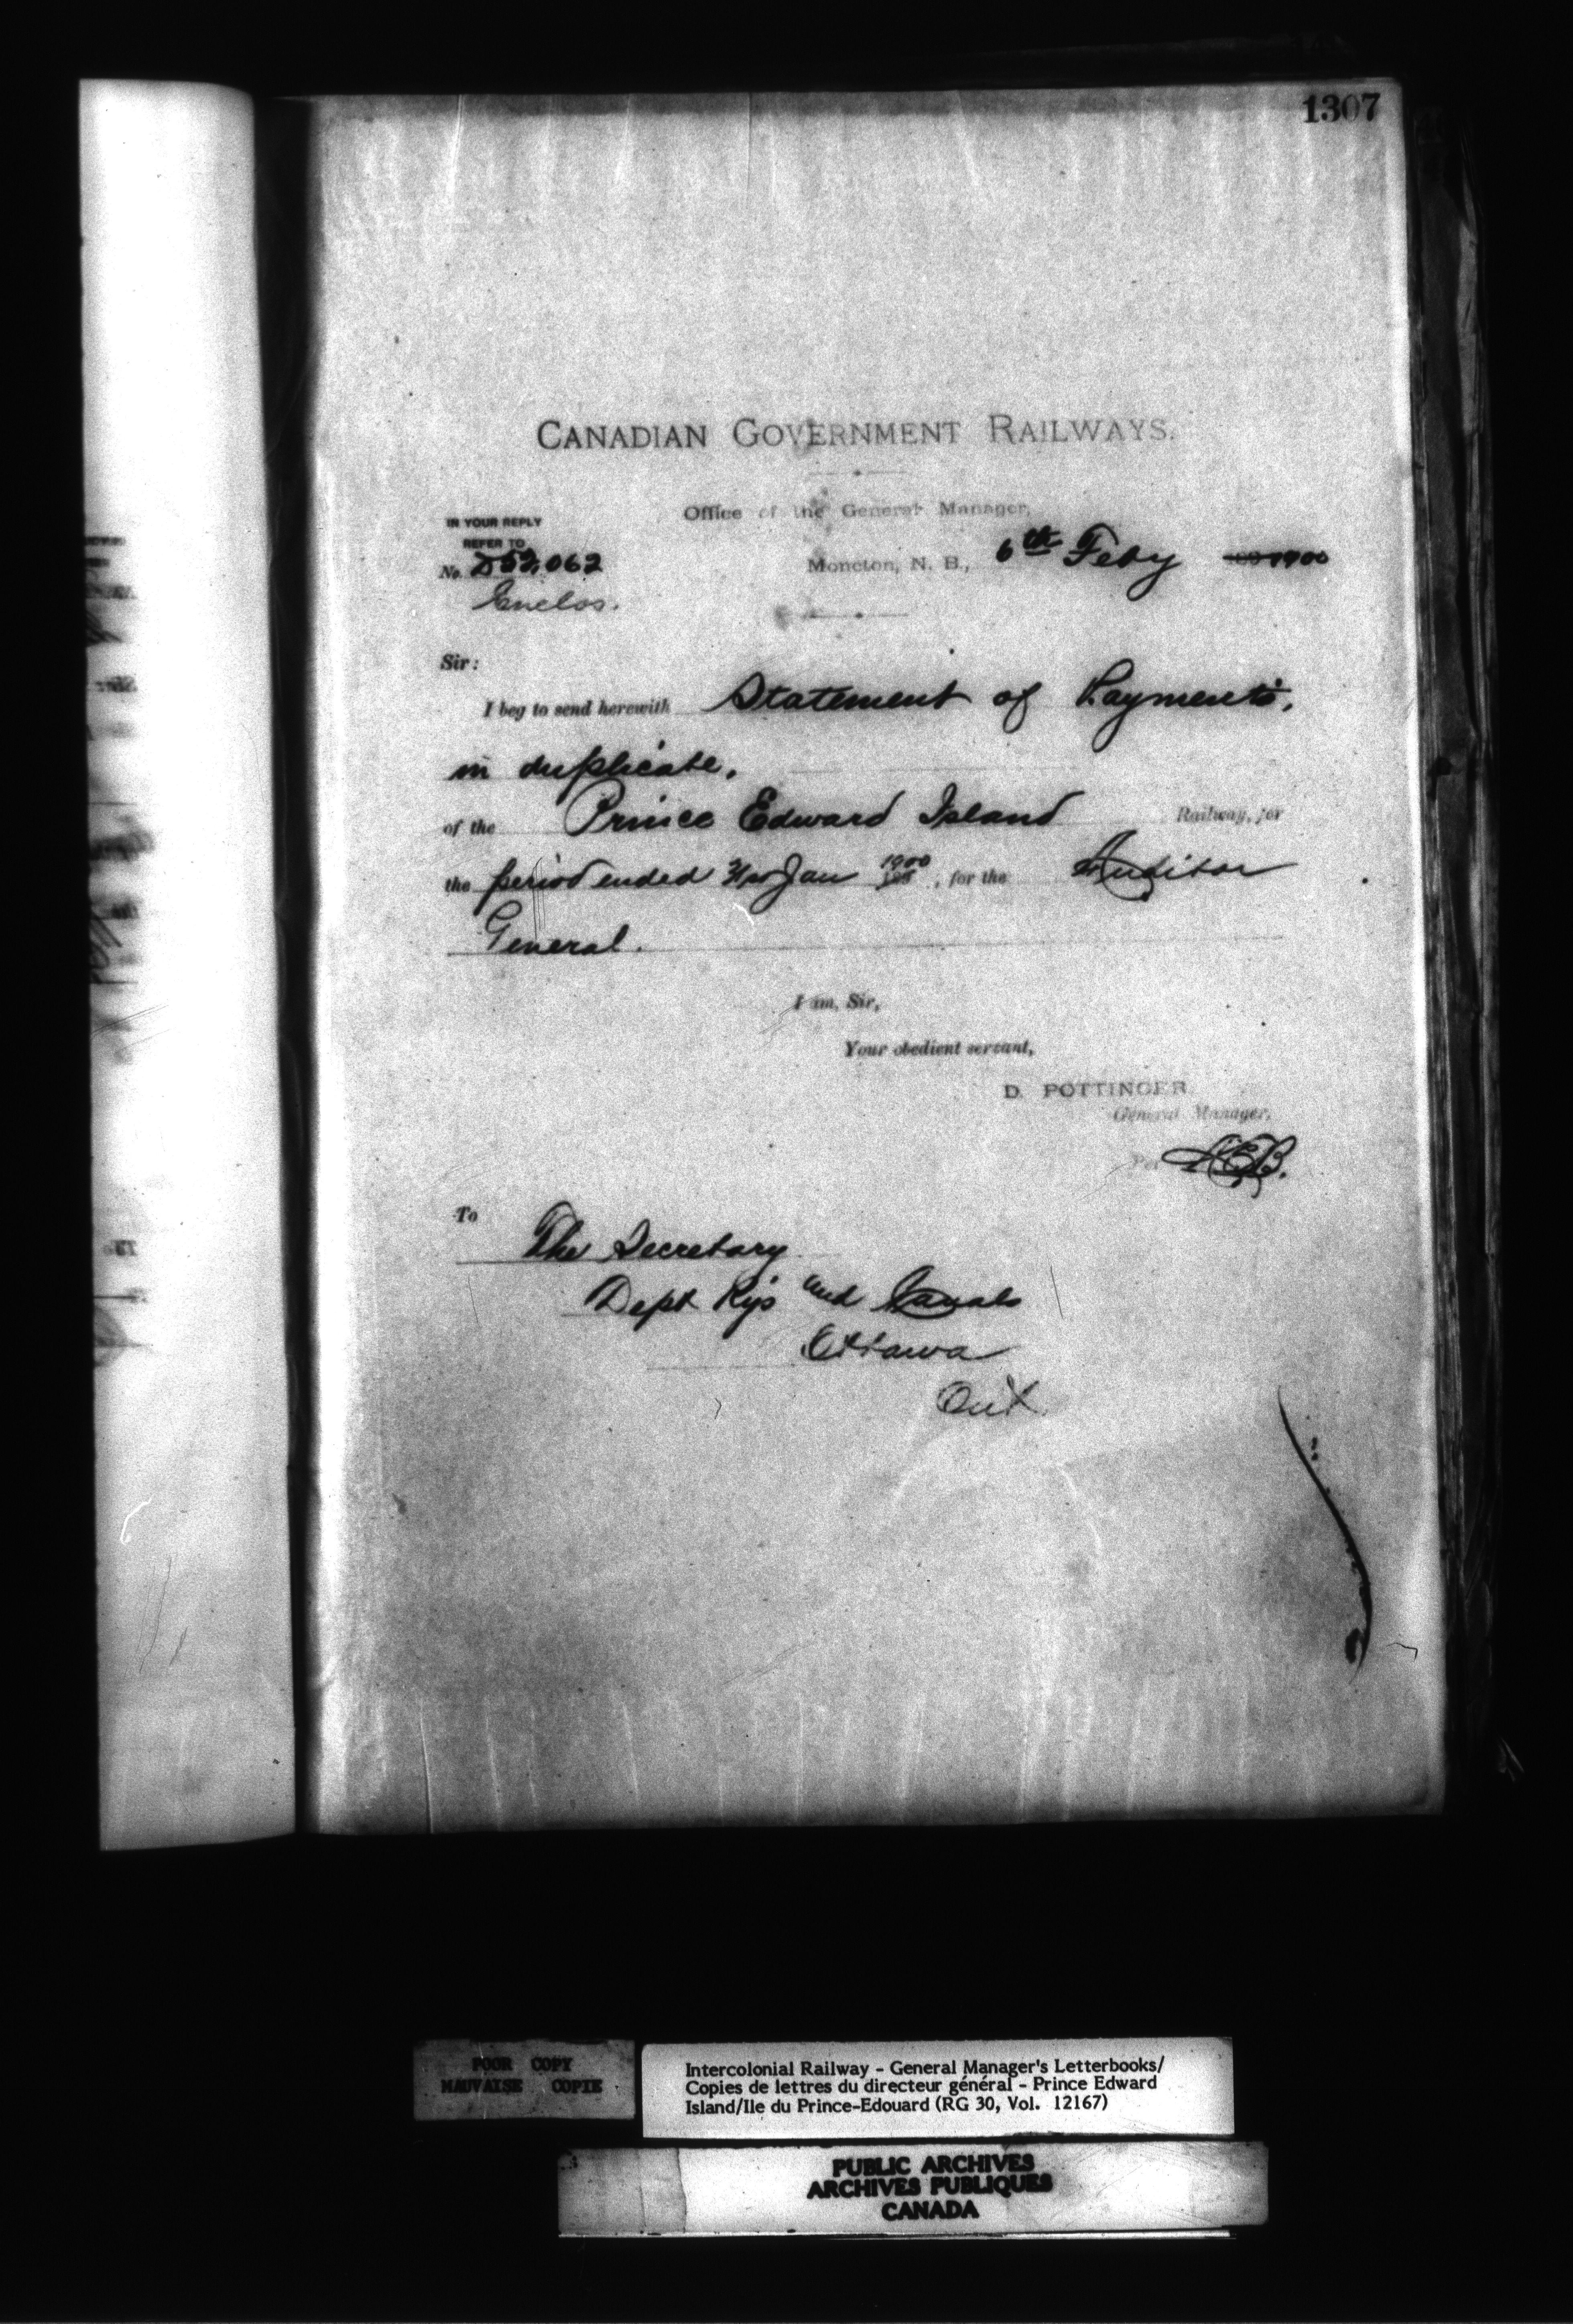 1307
CANADIAN GOVERNMENT RAILWAYS.
Office of the General Manager,
IN YOUR REPLY
REFER TO
No. D52,062
Moncton, N. B., 6th Feby 1900
Enclos.
Sir:
I beg to send herewith Statement of Payments,
in duplicate.
of the Prince Edward Island Railway, for
the period ended 31st Jan 1900, for the Auditor
General.
I am, Sir,
Your obedient servant,
D. POTTINGER
General Manager,
Per
To
The Secretary
Dept Rys and Canals
Ottawa
Ont.
POOR COPY
MAUVAISE COPIE
Intercolonial Railway - General Manager's Letterbooks/
Copies de lettres du directeur général - Prince Edward
Island/Ile du Prince-Edouard (RG 30, Vol. 12167)
PUBLIC ARCHIVES
ARCHIVES PUBLIQUES
CANADA